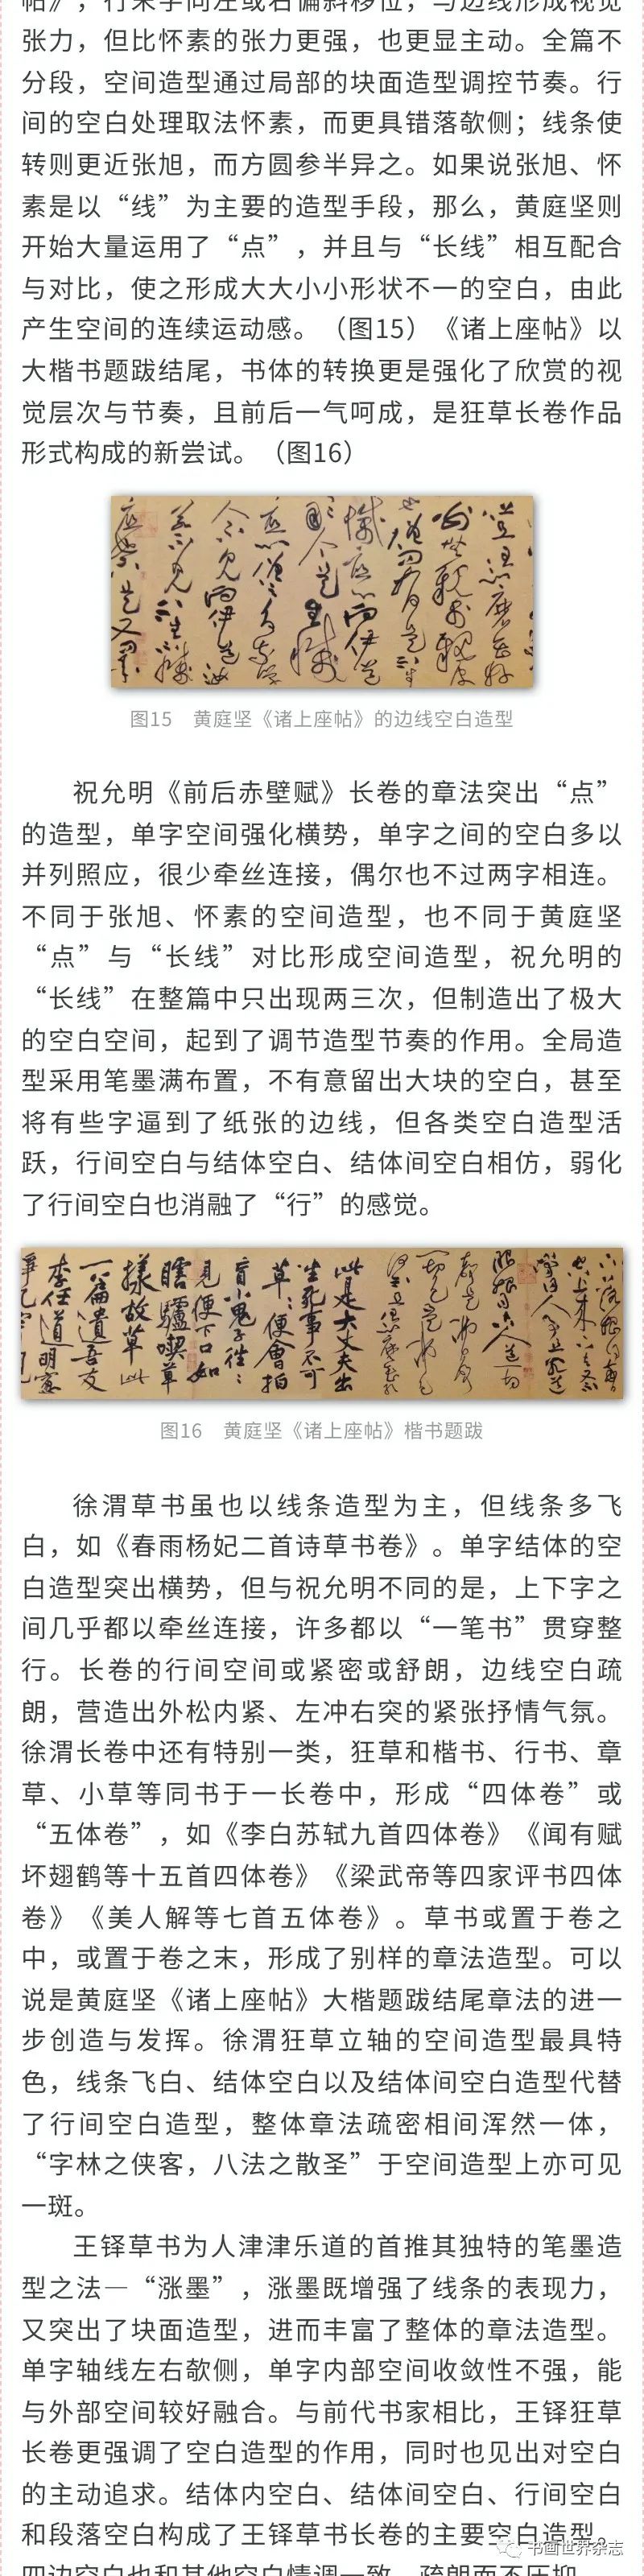 帖》，行末字向左或右偏斜移位，与边线形成视觉
张力，但比怀素的张力更强，也更显主动。全篇不
分段，空间造型通过局部的块面造型调控节奏。行
间的空白处理取法怀素，而更具错落欹侧；线条使
转则更近张旭，而方圆参半异之。如果说张旭、怀
素是以“线”为主要的造型手段，那么，黄庭坚则
开始大量运用了“点”，并且与“长线”相互配合
与对比，使之形成大大小小形状不一的空白，由此
产生空间的连续运动感。（图15）《诸上座帖》以
大楷书题跋结尾，书体的转换更是强化了欣赏的视
觉层次与节奏，且前后一气呵成，是狂草长卷作品
形式构成的新尝试。（图16）
图15 黄庭坚《诸上座帖》的边线空白造型
祝允明《前后赤壁赋》长卷的章法突出“点”
的造型，单字空间强化横势，单字之间的空白多以
并列照应，很少牵丝连接，偶尔也不过两字相连。
不同于张旭、怀素的空间造型，也不同于黄庭坚
“点”与“长线”对比形成空间造型，祝允明的
“长线”在整篇中只出现两三次，但制造出了极大
的空白空间，起到了调节造型节奏的作用。全局造
型采用笔墨满布置，不有意留出大块的空白，甚至
将有些字逼到了纸张的边线，但各类空白造型活
跃，行间空白与结体空白、结体间空白相仿，弱化
了行间空白也消融了“行”的感觉。
此是大丈夫出
生死事不可
草〻便會拍
盲小鬼子往〻
見便下口如
瞎驢喫草
樣故草此
一篇遺吾友
李任道明窗
图16 黄庭坚《诸上座帖》楷书题跋
徐渭草书虽也以线条造型为主，但线条多飞
白，如《春雨杨妃二首诗草书卷》。单字结体的空
白造型突出横势，但与祝允明不同的是，上下字之
间几乎都以牵丝连接，许多都以“一笔书”贯穿整
行。长卷的行间空间或紧密或舒朗，边线空白疏
朗，营造出外松内紧、左冲右突的紧张抒情气氛。
徐渭长卷中还有特别一类，狂草和楷书、行书、章
草、小草等同书于一长卷中，形成“四体卷”或
“五体卷”，如《李白苏轼九首四体卷》《闻有赋
坏翅鹤等十五首四体卷》《梁武帝等四家评书四体
卷》《美人解等七首五体卷》。草书或置于卷之
中，或置于卷之末，形成了别样的章法造型。可以
说是黄庭坚《诸上座帖》大楷题跋结尾章法的进一
步创造与发挥。徐渭狂草立轴的空间造型最具特
色，线条飞白、结体空白以及结体间空白造型代替
了行间空白造型，整体章法疏密相间浑然一体，
“字林之侠客，八法之散圣”于空间造型上亦可见
一斑。
王铎草书为人津津乐道的首推其独特的笔墨造
型之法—“涨墨”，涨墨既增强了线条的表现力，
又突出了块面造型，进而丰富了整体的章法造型。
单字轴线左右欹侧，单字内部空间收敛性不强，能
与外部空间较好融合。与前代书家相比，王铎狂草
长卷更强调了空白造型的作用，同时也见出对空白
的主动追求。结体内空白、结体间空白、行间空白
和段落空白构成了王铎草书长卷的主要空白造型。
四边空白也和其他空白情调一致，疏朗而不压抑
书画世界杂志